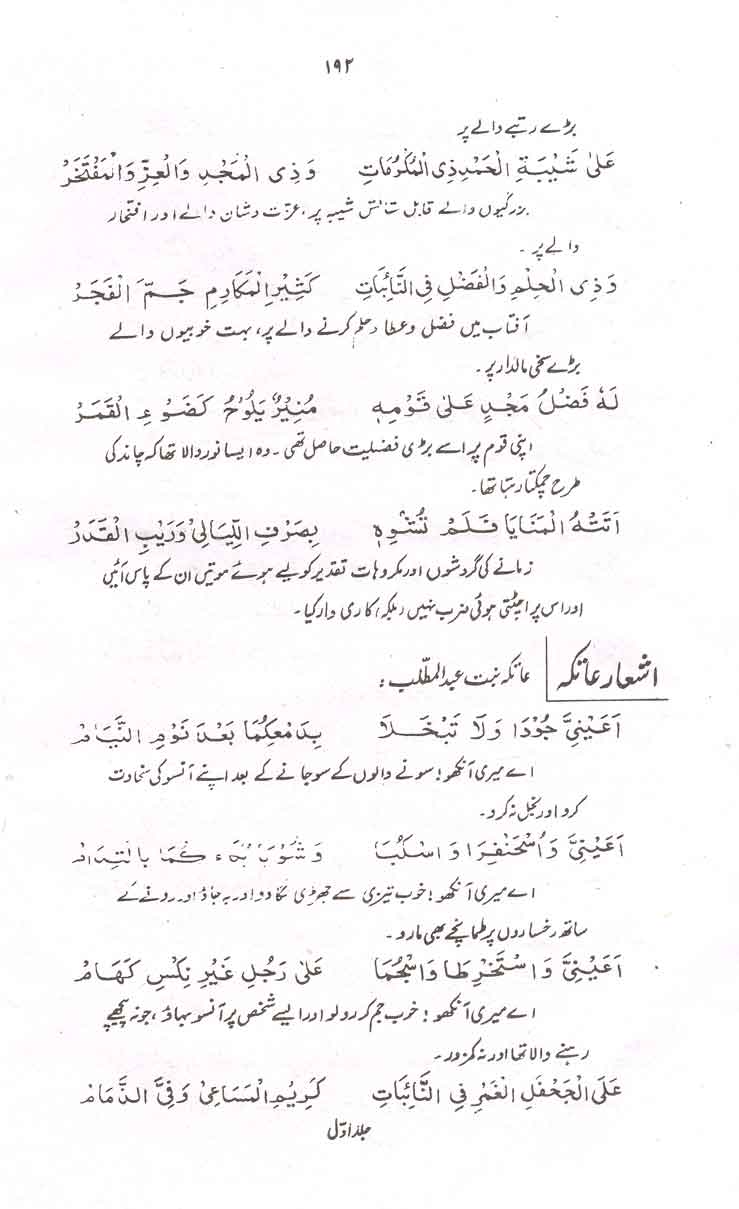 ۱۹۲
بڑے رتبے والے پر
عَلیٰ شَیْبَۃِ الْحَمْدِ ذِی الْمُکْرُمَاتِ وَذِی الْمَجْدِ وَالْعِزِّ وَالْمُفْتَخَرْ
بزرگیوں والے قابل ستائش شیبہ پر، عزت وشان والے اور افتخار
والے پر۔
وَذِی الْحِلْمِ وَالْفَضْلِ فِی النَّائِبَاتِ کَثِیْرِ الْمَکَارِمِ جَمِّ الْفَجَرْ
آفتاب میں فضل وعطا وحلم کرنے والے پر، بہت خوبیوں والے
بڑے سخی مالدار پر۔
لَہٗ فَضْلُ مَجْدٍ عَلیٰ قَوْمِہٖ مُنِیْرٌ یَلُوْحُ کَضَوْءِ الْقَمَرْ
اپنی قوم پر اسے بڑی فضیلت حاصل تھی۔ وہ ایسا نور والا تھا کہ چاند کی
طرح چمکتا رہتا تھا۔
اَتَتْہُ الْمَنَایَا فَلَمْ تُشْوِہٖ بِصَرْفِ اللَّیَالِیْ وَرَیْبِ الْقَدَرْ
زمانے کی گردشوں اور مکروہات تقدیر کو لیے ہوئے موتیں ان کے پاس آئیں
اور اس پر اچٹتی ہوئی ضرب نہیں (بلکہ) کاری وار کیا۔
اشعار عاتکہ عاتکہ بنت عبدالمطّلب:
اَعَیْنِیَّ جُوْدَا وَلَا تَبْخَلَا بِدَمْعِکُمَا بَعْدَ نَوْمِ النِّیَامْ
اے میری آنکھو! سونے والوں کے سو جانے کے بعد اپنے آنسو کی سخاوت
کرو اور بخل نہ کرو۔
اَعَیْنِیَّ وَاسْحَنْفِرَا وَاسْکُبَا وَشُوْبَا بُکَاءَکُمَا بِالْتِدَامْ
اے میری آنکھو! خوب تیزی سے جھڑی لگا دو اور بہ جاؤ اور رونے کے
ساتھ رخساروں پر طمانچے بھی مارو۔
اَعَیْنِیَّ وَاسْتَخْرِطَا وَاسْجُمَا عَلیٰ رَجُلٍ غَیْرِ نِکْسٍ کَھَامْ
اے میری آنکھو! خوب جم کر رو لو اور ایسے شخص پر آنسو بہاؤ، جو نہ پیچھے
رہنے والا تھا اور نہ کمزور۔
عَلَی الْجَحْفَلِ الْغَمْرِ فِی النَّائِبَاتِ کَرِیْمِ الْمَسَاعِیْ وَفِیَّ الذِّمَامْ
جلد اوّل